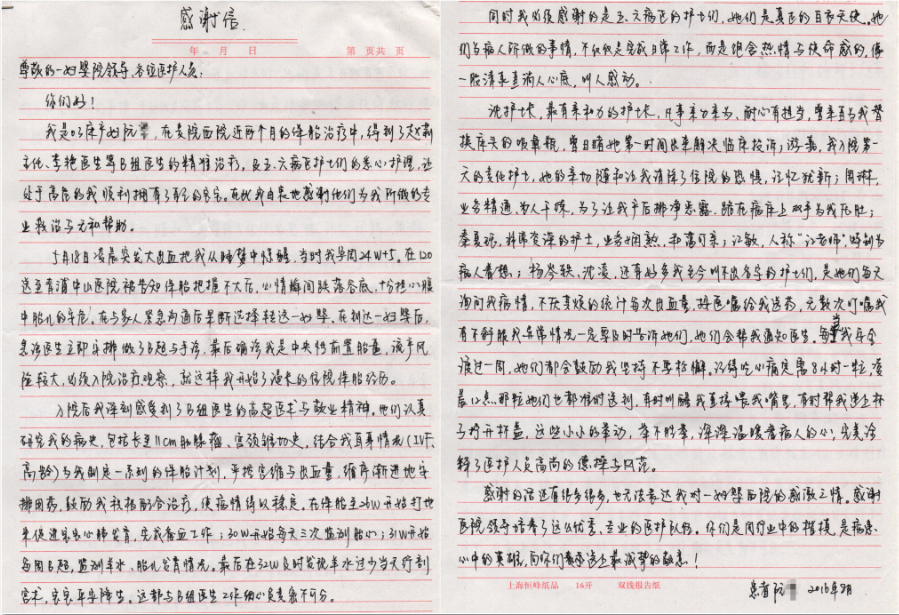 感谢信
年 月 日 第 页共 页
尊敬的一妇婴院领导、各位医护人员:
你们好!
我是03床产妇阮 , 在贵院西院近两个月的保胎治疗中, 得到了赵新
主任、李艳医生等B组医生的精准治疗, 及五、六病区护士们的悉心护理, 让
处于高危的我顺利拥有了自己的宝宝。在此我由衷地感谢他们为我所做的专
业救治与无私帮助。
5月18日凌晨突发大出血把我从睡梦中惊醒, 当时我孕周24W+5。在120
送至青浦中山医院被告知保胎把握不大后, 心情瞬间跌落谷底, 十分担心腹
中胎儿的安危。在与家人紧急沟通后果断选择转送一妇婴。在到达一妇婴后,
急诊医生立即安排做了B超与手诊, 最后确诊我是中央性前置胎盘, 流产风
险较大, 必须入院治疗观察, 就这样我开始了漫长的住院保胎经历。
入院后我深刻感受到了B组医生的高超医术与敬业精神。他们认真
研究我的病史, 包括长至11cm肌腺瘤, 宫颈锥切史, 结合我自身情况(IVF、
高龄)为我制定一系列的保胎计划, 平控宫缩与出血量, 循序渐进地安
排用药, 鼓励我积极配合治疗, 使病情得以稳定。在保胎至28W开始打地
米促进宝宝心肺发育, 完成备血工作; 30W开始每天三次监测胎心; 31W开始
每周B超, 监测羊水、胎儿发育情况。最后在32W及时发现羊水过少当天行剖
宫术, 宝宝平安降生。这都与B组医生工作细心负责密不可分。
同时我必须感谢的是五、六病区的护士们, 她们是真正的白衣天使。她
们为病人所做的事情, 不仅仅是完成日常工作, 而是饱含热情与使命感的, 像
一股清泉直淌人心底, 叫人感动。
沈护士长, 最有亲和力的护士长, 凡事亲力亲为、耐心有担当, 曾亲自为我替
换床头的吸氧瓶, 曾目睹她第一时间出来解决临床投诉; 游嘉, 我入院第一
天的责任护士, 她的亲切随和让我消除了住院的恐惧, 记忆犹新; 周琳,
业务精通, 为人干练, 为了让我产后排净恶露, 跪在病床上双手为我压肚;
秦夏瑶, 科带资深的护士, 业务娴熟, 和蔼可亲; 江敏, 人称“江老师”时刻为
病人着想; 杨岑轶, 沈凌, 还有好多我至今叫不出名字的护士们, 是她们每天
询问我病情, 不厌其烦的统计每次出血量, 按医嘱给我送药, 无数次叮嘱我
有不舒服或异常情况一定要及时告诉她们, 她们会帮我通知医生, 每当我安全
渡过一周, 她们都会鼓励我坚持不要松懈。记得吃心痛定需8小时一粒, 凌
晨12点那粒她们也都准时送到, 有时叫醒我直接喂我嘴里, 有时帮我递上杯
子拧开杯盖, 这些小小的举动, 举不胜举, 深深温暖着病人的心, 完美诠
释了医护人员高尚的德操与风范。
感谢的话还有很多很多, 也无法表达我对一妇婴西院的感激之情。感谢
医院领导培养了这么优秀、专业的医护队伍。你们是同行业中的楷模, 是病患
心中的英雄, 向你们敬意送上最诚挚的敬意!
上海恒峰纸品 16开 双线报告纸
患者阮 2016年8月